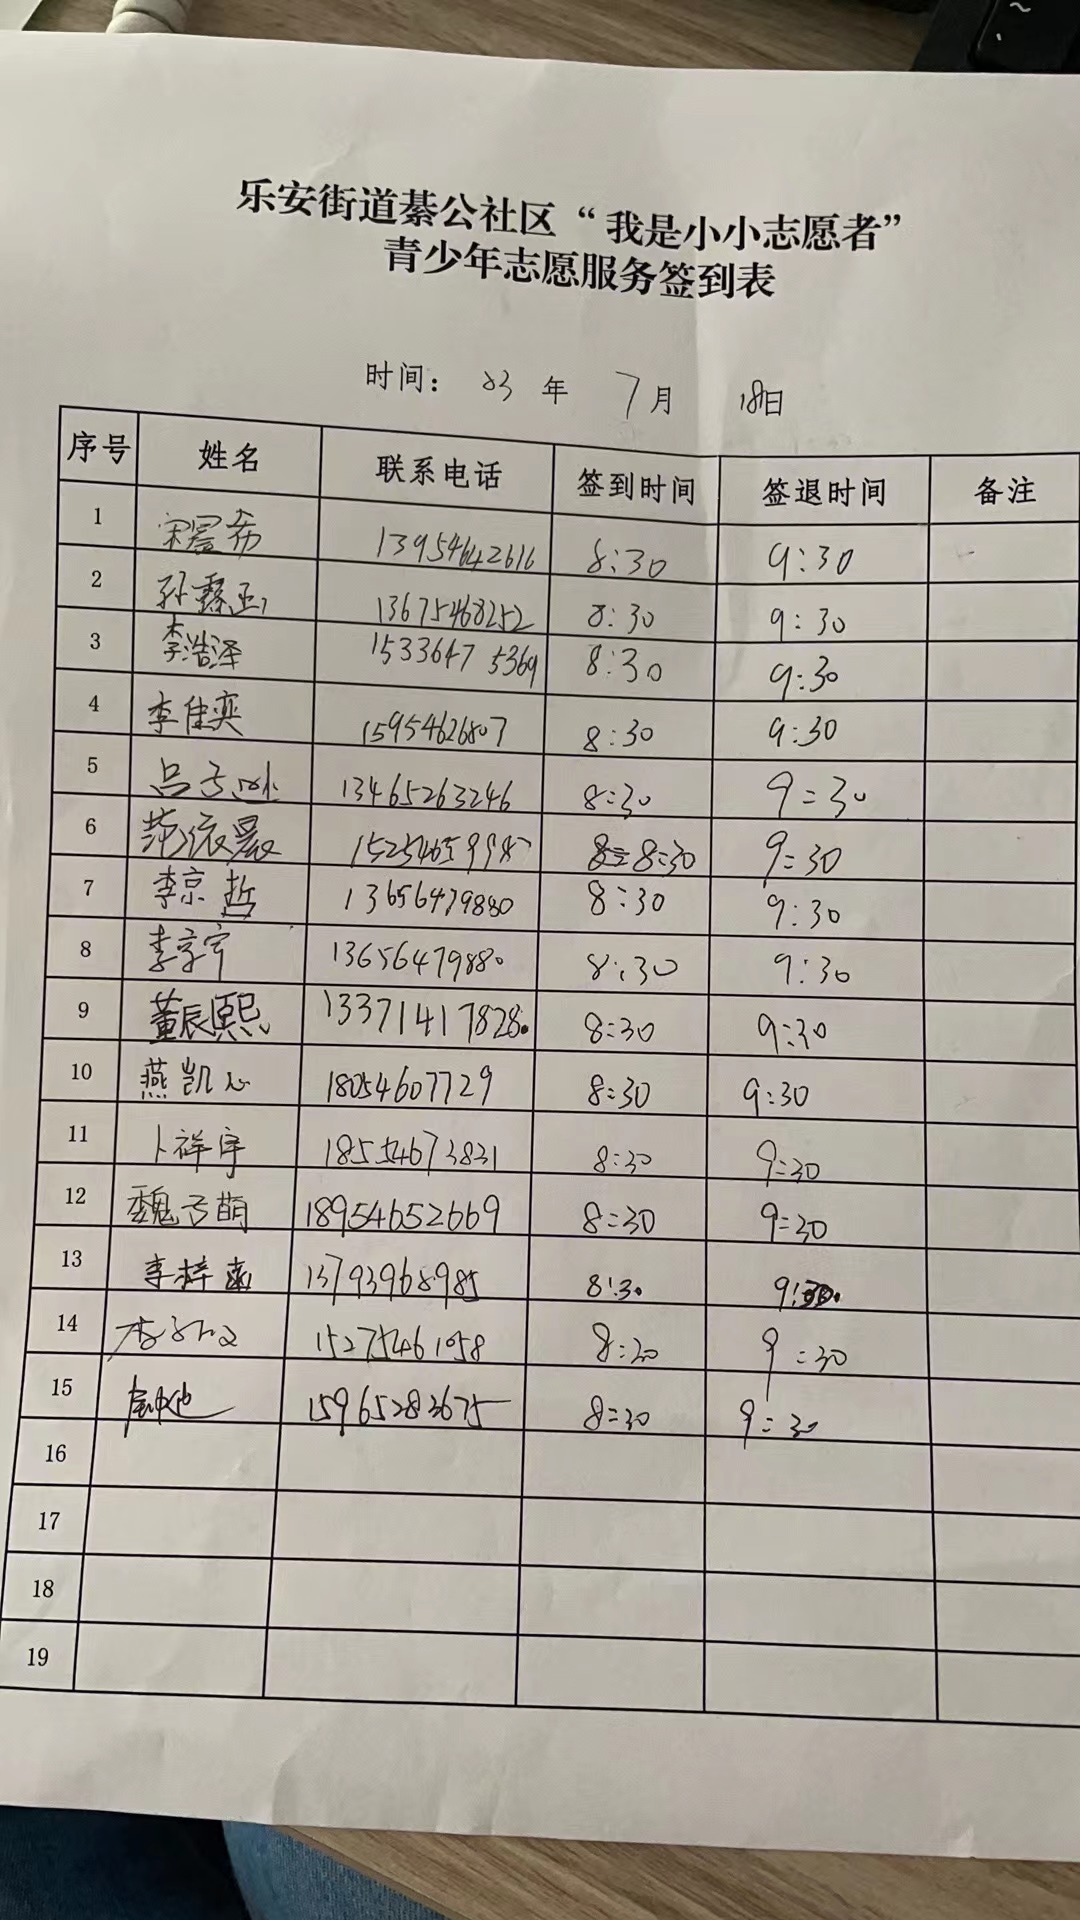 乐安街道綦公社区“我是小小志愿者”
青少年志愿服务签到表
时间： 23 年 7 月 18日
序号 姓名 联系电话 签到时间 签退时间 备注
1 宋 希 13954642616 8:30 9:30
2 孙 13675468252 8:30 9:30
3 李浩泽 15336475369 8:30 9:30
4 李佳奕 15954626807 8:30 9:30
5 吕子 13465263246 8:30 9:30
6 15254659987 8:30 9:30
7 李京哲 13656479880 8:30 9:30
8 李京宇 13656479880 8:30 9:30
9 董辰熙 13371417828. 8:30 9:30
10 燕凯心 18054607729 8:30 9:30
11 卜祥宇 18554673831 8:30 9:30
12 魏子萌 18954652669 8:30 9:30
13 李梓 13793968985 8:30 9:30.
14 李 15275461058 8:30 9:30
15 15965283675 8:30 9:30
16
17
18
19